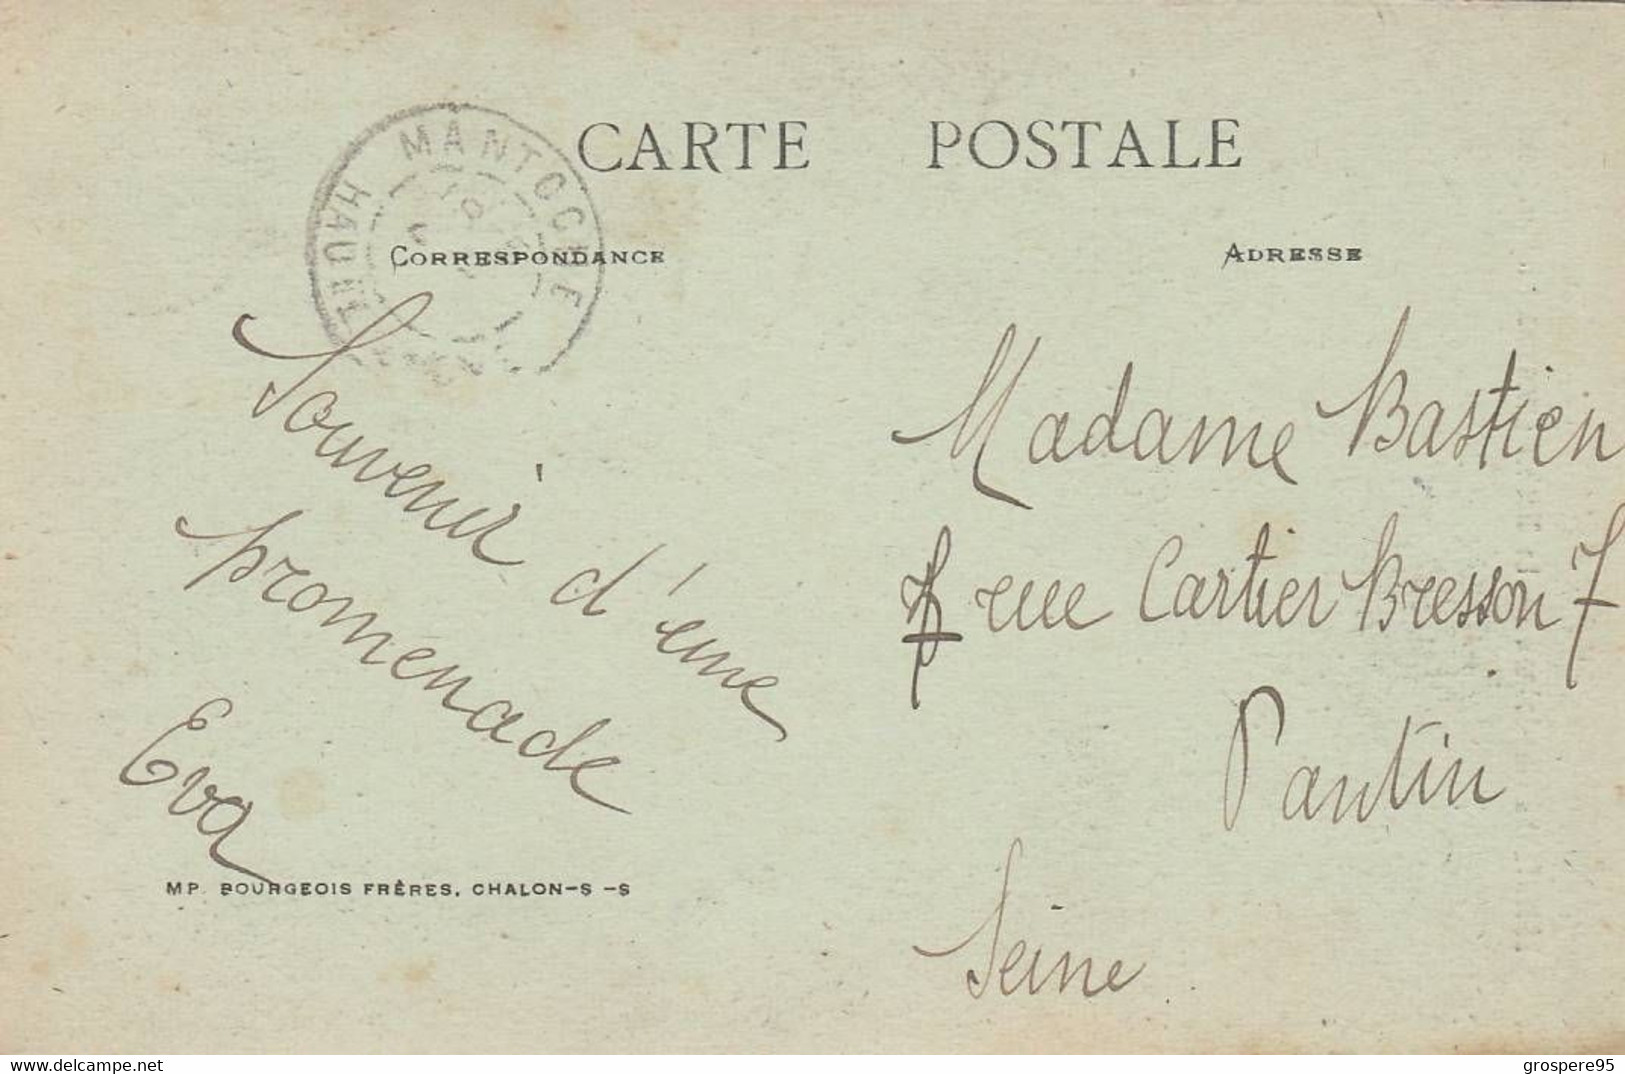 CARTE POSTALE
MANTOCHE
HAUTE
CORRESPONDANCE
ADRESSE
Souvenir d'une
promenade
Eva
MP. BOURGEOIS FRÈRES, CHALON-S -S
Madame Bastien
7 rue Cartier Bresson 7
Pantin
Seine
grospere95